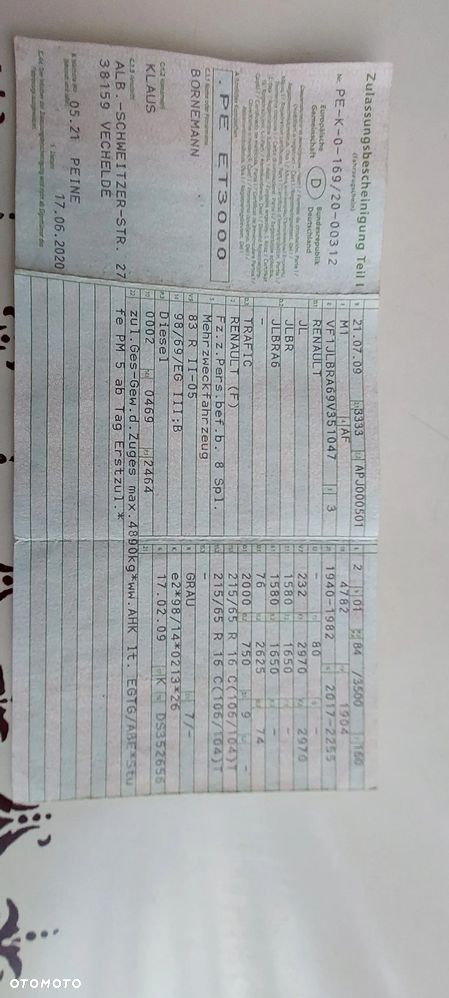 Zulassungsbescheinigung Teil I
(Fahrzeugschein)
Nr. PE-K-0-169/20-00312
Europäische
Gemeinschaft
D
Bundesrepublik
Deutschland
.PE ET3000
BORNEMANN
KLAUS
ALB.-SCHWEITZER-STR. 27
38159 VECHELDE
05.21 PEINE
17.06.2020
21.07.09 3333 APJ000501
M1 AF
VF1JLBRA69V351047 3
RENAULT
JL
JLBR
JLBRA6
-
TRAFIC
RENAULT (F)
Fz.z.Pers.bef.b. 8 Spl.
Mehrzweckfahrzeug
83 R II-05
98/69/EG III;B
Diesel
0002 0469 2464
zul.Ges-Gew.d.Zuges max.4890kg*ww.AHK lt. EGTG/ABE*Stu
fe PM 5 ab Tag Erstzul.*
2 01 84 /3500 160
4782 1904
1940-1982 2017-2255
- 80 -
232 2970 2970
1580 1650 -
1580 1650 -
76 2625 74
2000 750 9 -
215/65 R 16 C(106/104)T
215/65 R 16 C(106/104)T
-
GRAU 7/-
e2*98/14*0213*26
17.02.09 K DS352656
OTOMOTO